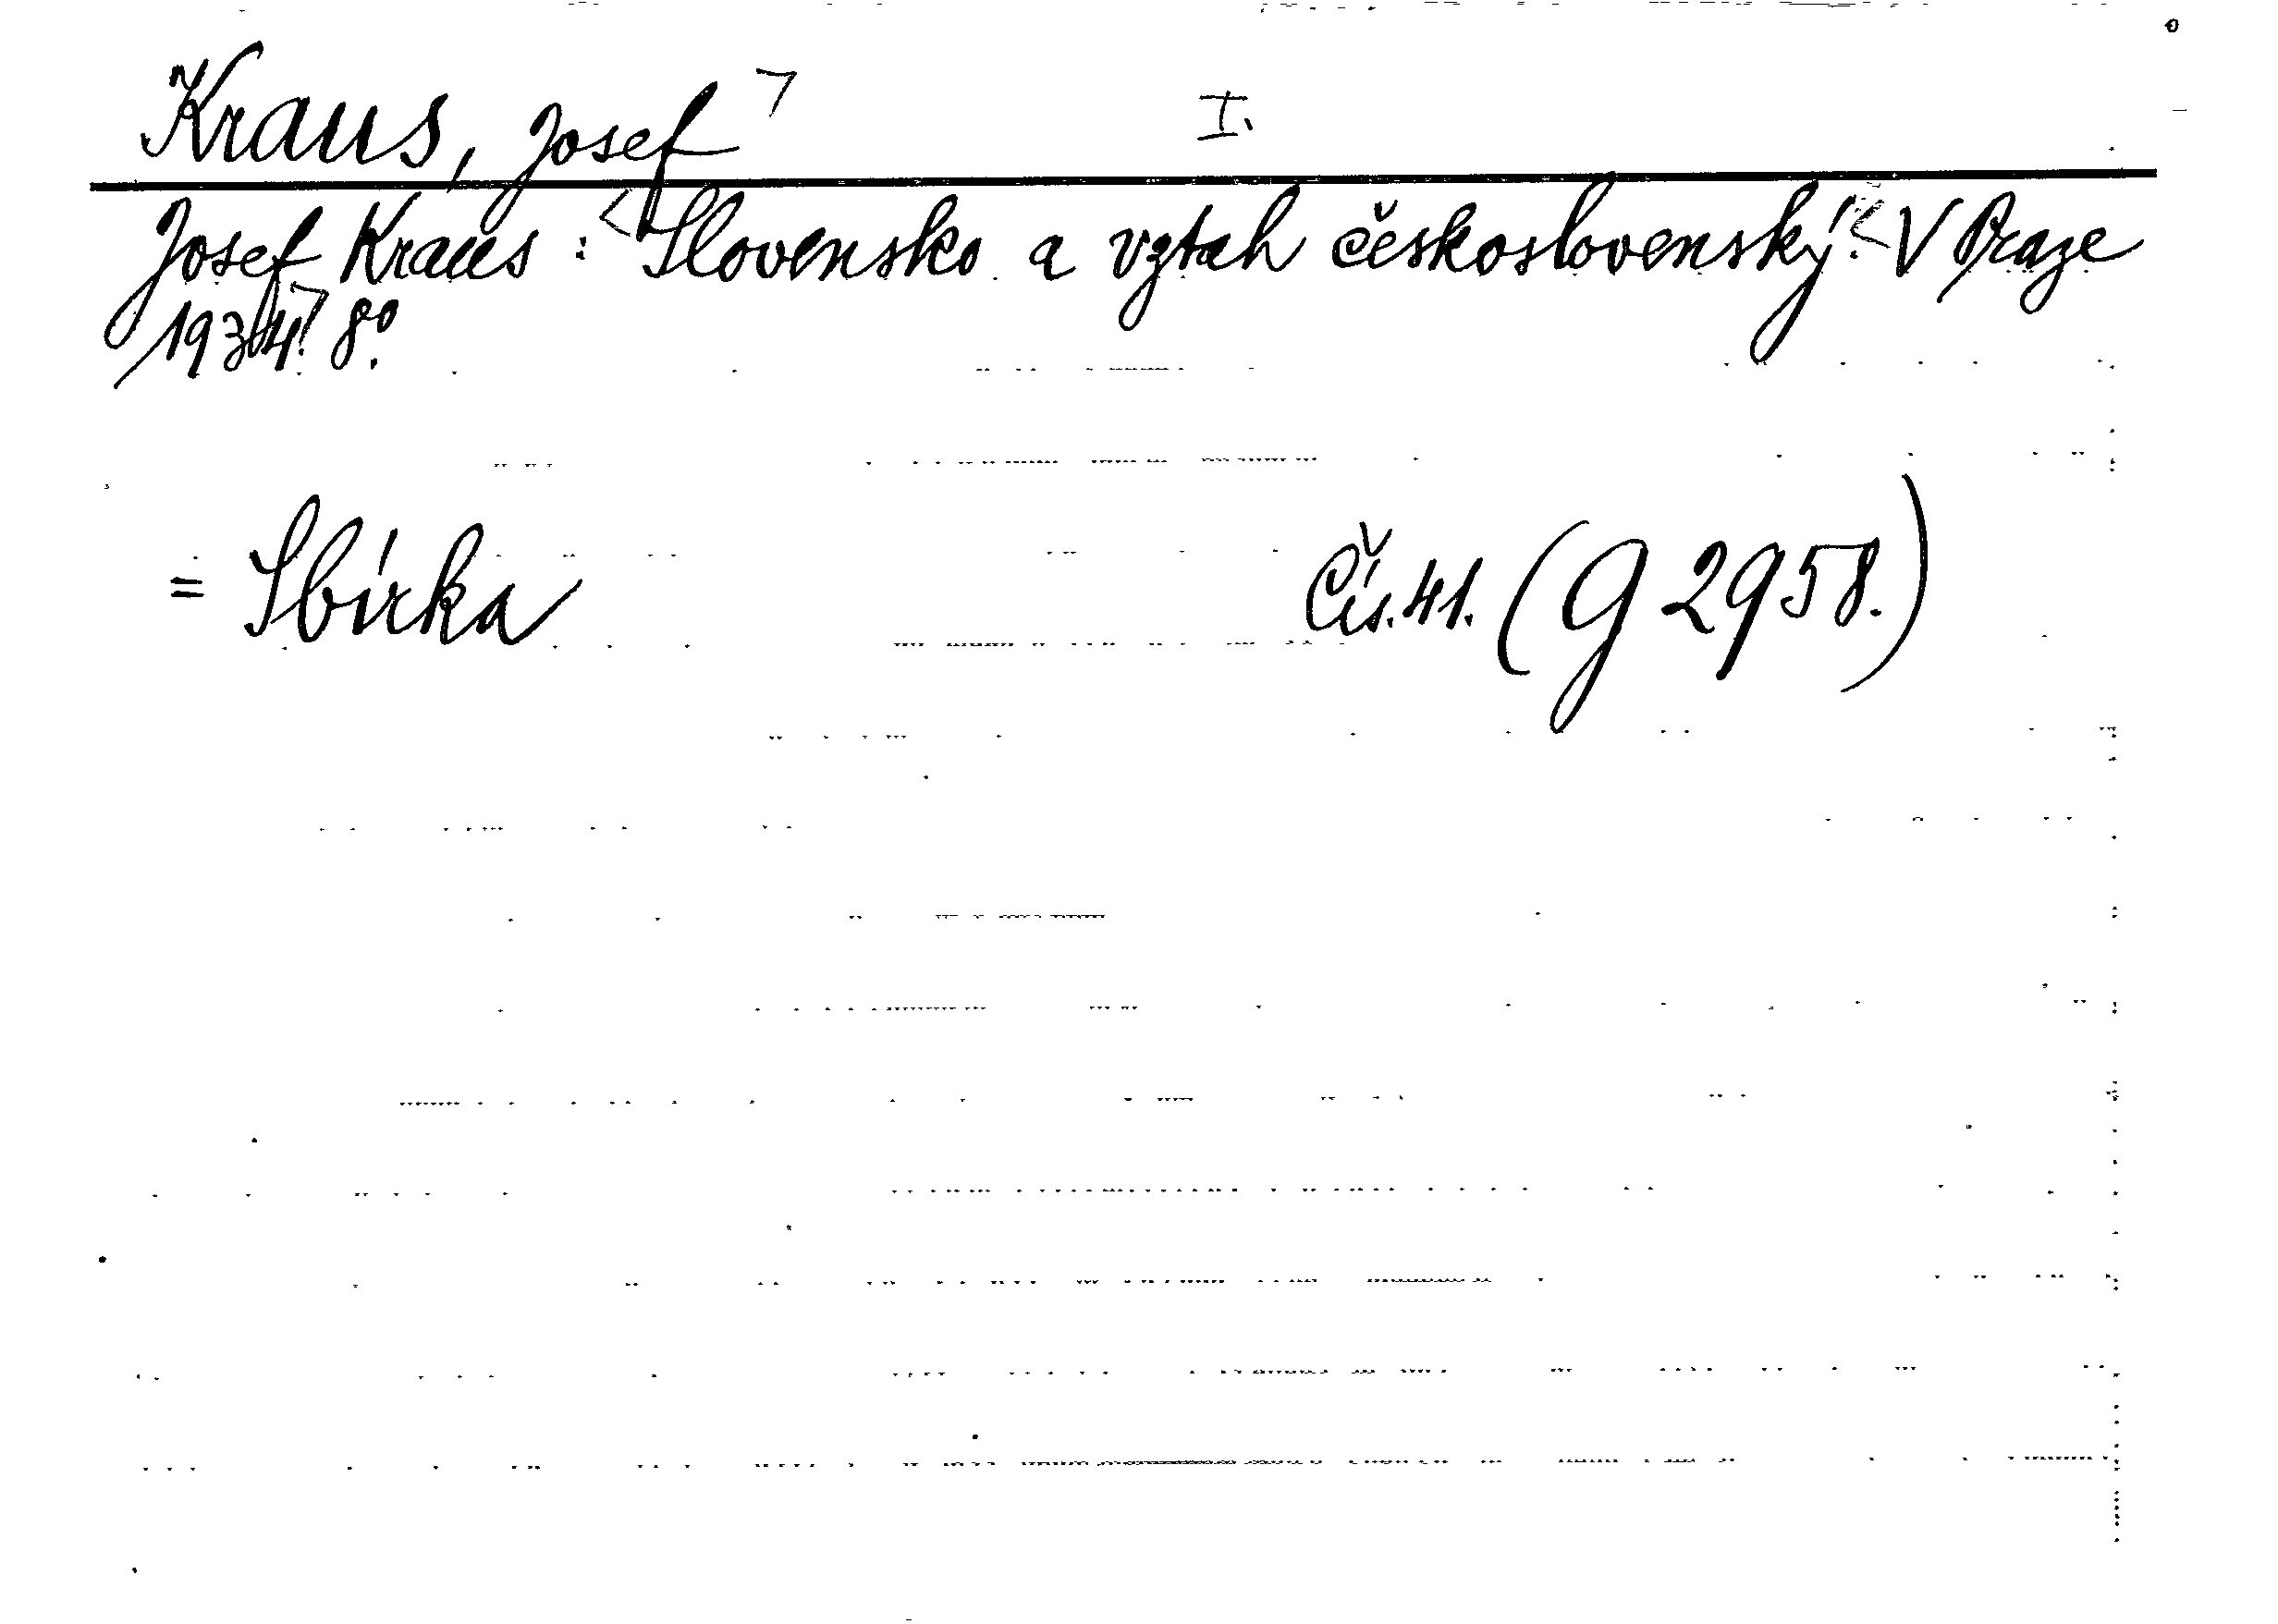 Kraus, Josef ꓶ I.
Josef Kraus: <Slovensko a vztah československý.< V Praze
1934.ꓶ 8°.
= Sbírka Čís. 41. (G 2958.)